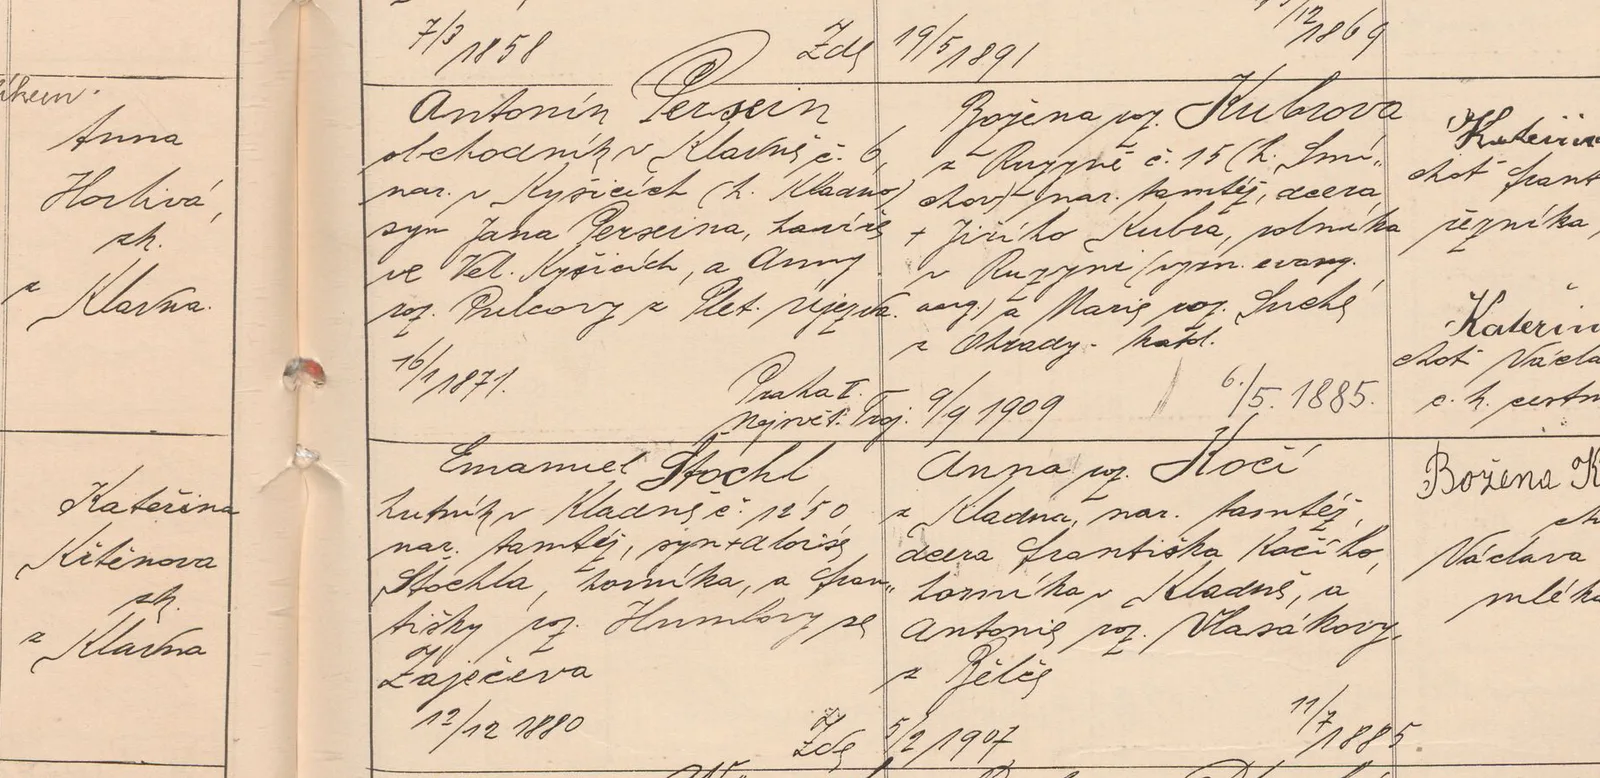 7/3 1858 Zde 19/5 1891 12/1869
Anna
Horlivá,
sk.
z Klavna.
Antonín Persein
obchodník v Klavně č. 6,
nar. v Kyšicích (h. Kladno)
syn Jana Perseina, havíře
ve Vel. Kyšicích, a Anny
roz. Pulcovy z Plet. Újezda.
16/1 1871. Praha I.
Nejsvět. Troj. 9/9 1909
Božena roz. Kubrova
z Ruzyně č. 15 (h. Smí„
chov) nar. tamtéž, dcera
+ Jiřího Kubra, rolníka
v Ruzyni (vyzn. evang.
aug.) a Marie roz. Suché
z Ohrady. katol.
6./5. 1885.
Kateřin
choť Frant
řezníka,
Kateřin
choť Václa
c. k. cestm
Kateřina
Křtěnova
sk.
z Klavna
Emanuel Štochl,
hutník v Kladně č. 1250
nar. tamtéž, syn + Aloise
Štochla, horníka, a Fran„
tišky roz. Humlovy ze
Zaječova
12/12 1880 Zde 5/2 1907
Anna roz. Kočí
z Kladna, nar. tamtéž,
dcera Františka Kočího,
horníka v Kladně, a
Antonie roz. Vlasákovy,
z Bělče
11/7 1885
Božena K
ch
Václava
mléka